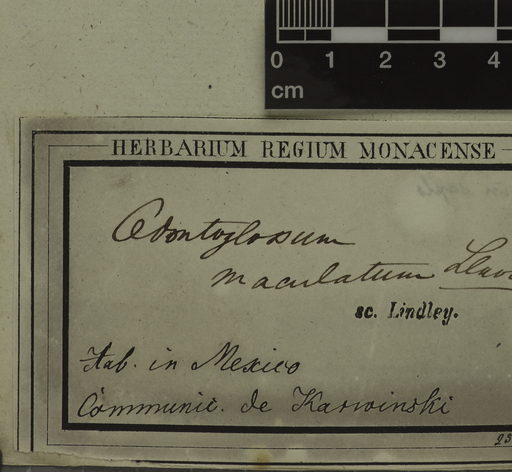 0 1 2 3 4
cm
HERBARIUM REGIUM MONACENSE
Odontoglosum
maculatum
sc. Lindley.
Hab. in Mexico
Communic. de Karwinski